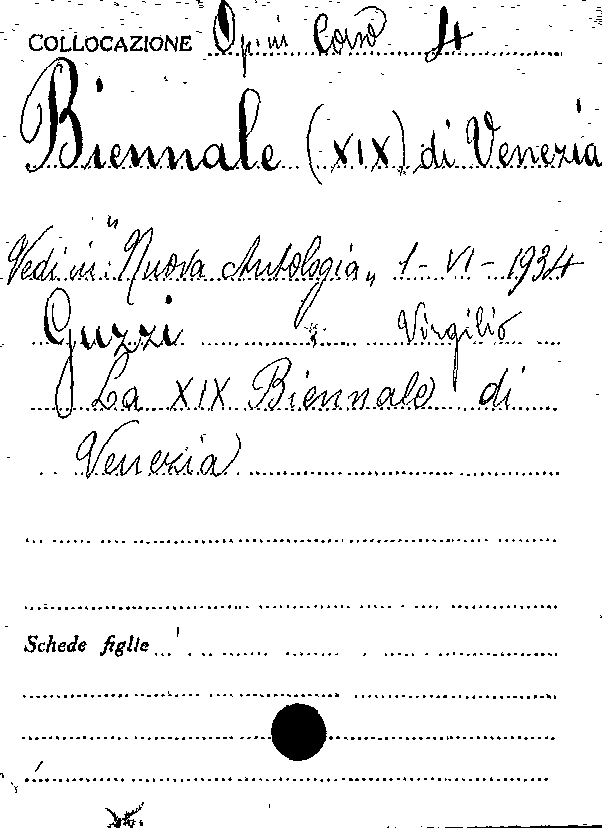 COLLOCAZIONE Opini Corso 4
Biennale (XIX) di Venezia
Vedi in: "Nuova Antologia„ 1-VI-1934
Guzzi Virgilio
La XIX Biennale di
Venezia
Schede figlie